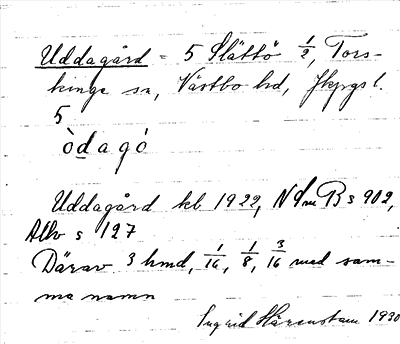 Uddagård = 5 Slättö 1/2, Tors-
kinge sn, Västbo hd, Jkpgs l.
5
òdagó
Uddagård kb 1922, NSmB s 902,
Allv s 127
Därav 3 hmd, 1/16, 1/8, 3/16 med sam-
ma namn
Ingrid Härenstam 1930